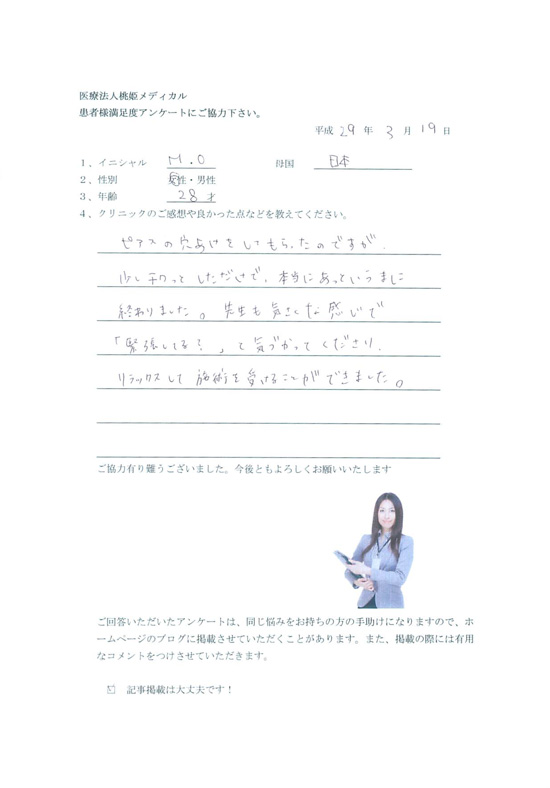 医療法人桃姫メディカル
患者様満足度アンケートにご協力下さい。
平成 29 年 3 月 19 日
1、イニシャル M.O 母国 日本
2、性別 女性・男性
3、年齢 28 才
4、クリニックのご感想や良かった点などを教えてください。
ピアスの穴あけをしてもらったのですが、
少しチクッとしただけで、本当にあっというまに
終わりました。先生も気さくな感じで
「緊張してる?」と気づかってくださり、
リラックスして施術を受けることができました。
ご協力有り難うございました。今後ともよろしくお願いいたします
ご回答いただいたアンケートは、同じ悩みをお持ちの方の手助けになりますので、ホ
ームページのブログに掲載させていただくことがあります。また、掲載の際には有用
なコメントをつけさせていただきます。
☑ 記事掲載は大丈夫です!